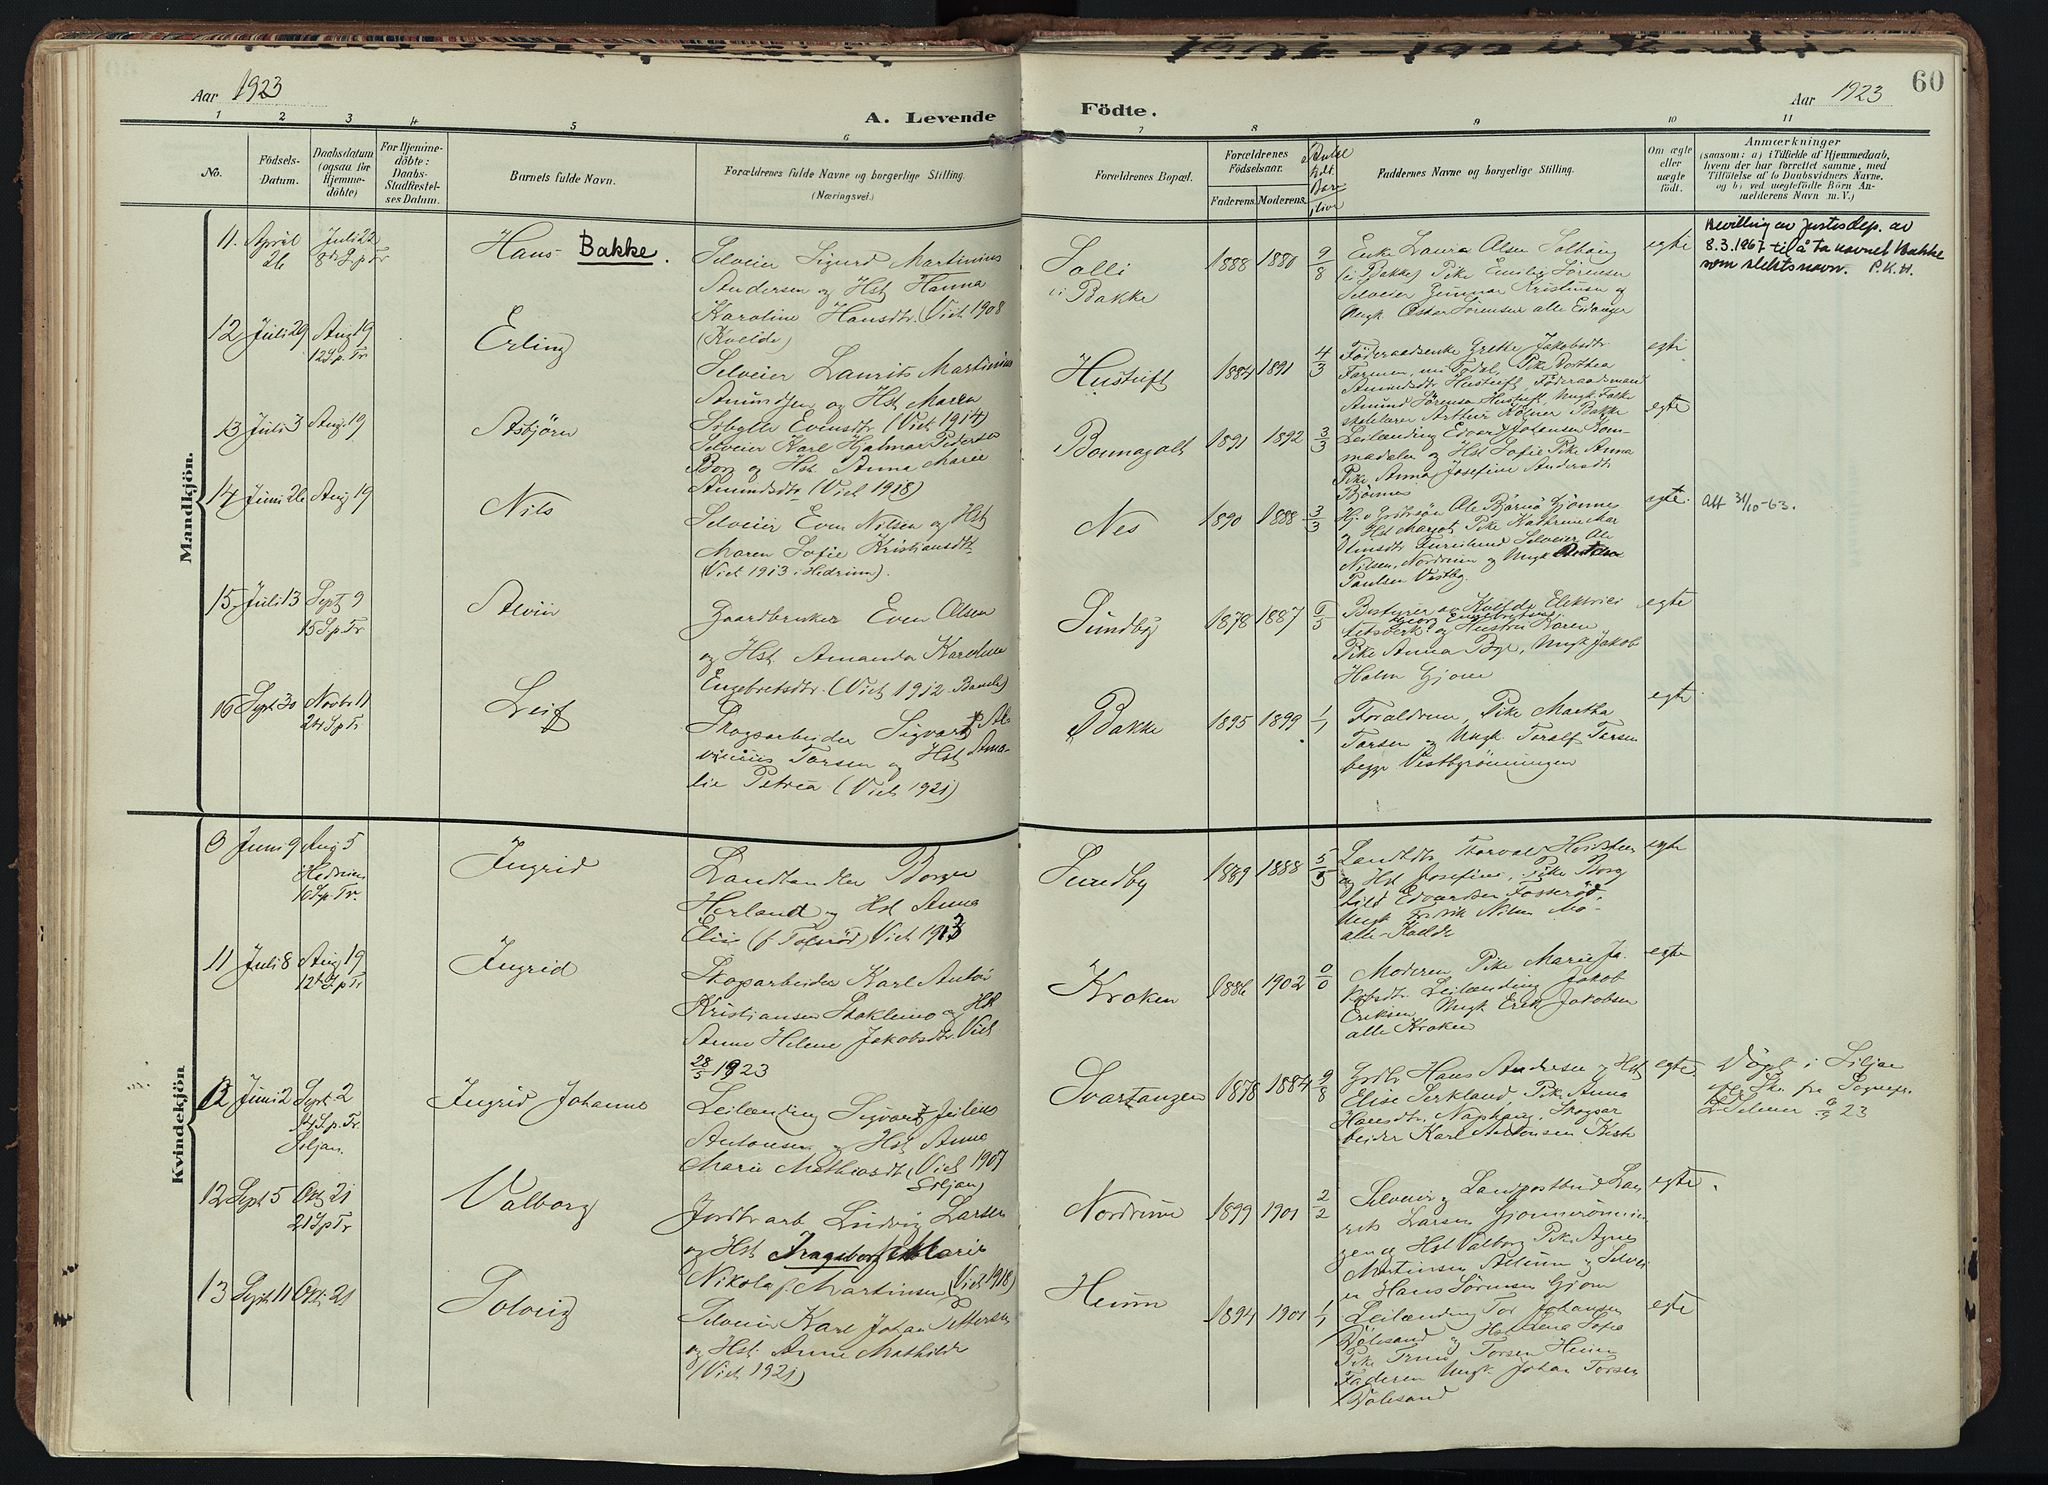 60
Aar 1923
A. Levende Födte.
Aar 1923
1 2 3 4 5 6 7 8 9 10 11
No.
Födsels-
Datum.
Daabsdatum
(ogsaa for
Hjemme-
döbte)
For Hjemme-
döbte:
Daabs-
Stadfæstel-
ses Datum.
Barnets fulde Navn.
Forældrenes fulde Navne og borgerlige Stilling.
(Næringsvei.)
Forældrenes Bopæl.
Forældrenes
Födselsaar.
Faderens. Moderens.
Faddernes Navne og borgerlige Stilling.
Om ægte
eller
uægte
födt.
Anmærkninger
(saasom: a) i Tilfælde af Hjemmedaab,
hvem der har forrettet samme, med
Tilföielse af to Daabsvidners Navne,
og b) ved uægtefödte Börn An-
melderens Navn m. V.)
Mandkjön.
11. April 26
Juli 22
8 S. p Tr
Hans Bakke.
Selveier Sigurd Martinius
Andersen og Hst Hanna
Karoline Hansdtr. (Viet 1908
(Kvelde)
Solli
i Bakke
1888 1880 9/8
Enke Laura Olsen Solhaug
(i Bakke) Pike Emilie Sörensen
Selveier Gunnar Kristensen og
Ungk Oskar Sörensen alle Eidanger
egte
Bevilling av Justisdep. av
8.3.1967 til å ta navnet Bakke
som slektsnavn. P.K.H.
12 Juli 29
Aug 19
12 S. p. Tr
Erling
Selveier Laurits Martinius
Amundsen og Hst Maren
Sibylle Evensdtr (Viet 1914)
Hustuft
1884 1891 4/3
Föderaadsenke Grethe Jakobsdtr
Amundsdtr Hustuft, Föderaadsmand
Amund Sörensen Hustuft, Ungk
Arthur Bakke
egte
13 Juli 3 Aug 19
Asbjörn
Selveier Karl Hjalmar Pedersen
Borg og Hst Anna Marie
Amundsdtr (Viet 1918)
Bonnagolt
1891 1892 3/3
Leilænding Edvard Johansen Bom-
madalen og Hst Sofie Pike Anna
Pike Anna Josefine Andersdtr
Björnnes
egte
14 Juni 26 Aug 19
Nils
Selveier Even Nilsen og Hst
Maren Sofie Kristiansdtr
(Viet 1913 i Hedrum).
Nes
1890 1888 3/3
Ole Bjarne Gjönnes
og Hst Margot Pike Kathrine Mar
Selveier Ole
Nilsen, Nordrum og Ungk
Paulsen Vestby.
egte.
Att 31/10-63.
15 Juli 13
Sept 9
15 S. p Tr
Alvin
Gaardbruker Even Olsen
og Hst Amanda Karoline
Engebretsdtr. (Viet 1912 Bamle)
Sundby
1878 1887 6/5
Bestyrer av Kvelde Elektrici
tetsverk og Hustru Karen
Pike Anna Bye, Ungk Jakob
Holm Gjone
egte
16 Sept 30
Novbr 11
24 S p Tr
Leif
Skogsarbeider Sigvart Al-
vinius Torsen og Hst Ama-
lie Petrea (Viet 1921)
Bakke
1895 1899 1/1
Foraldrene, Pike Martha
Torsen og Ungk. Toralf Torsen
begge Vestbyrönningen
egte
Kvindekjön
9 Juni 9
Aug 5
Hedrum
10 S. p. Tr.
Ingrid
Landhandler Borger
Herland og Hst Anna
Elise (f Tolsröd) Viet 1913
Sundby
1889 1888 5/5
Landhdl Torvald Hvidsteen
og Hst Josefine, Pike Borg
hild Edvardsen Fosseröd,
Ungk Fredrik Nilsen Mo-
alle Kvelde
egte
11 Juli 8
Aug 19
12te S p Tr
Ingrid
Skogarbeider Karl Anton
Kristiansen Staklemo og Hst
Anne Helene Jakobsdtr Viet
28/5 1923
Kroken
1886 1902 0/0
Moderen Pike Marie Ja-
kobsdtr Leilænding Jakob
Eriksen Ungk Erik Jakobsen
alle Kroken
egte
12 Juni 2
Sept 2
14 S. p. Tr.
Siljan.
Ingrid Johanne
Leilænding Sigvart Julius
Antonsen og Hst Anna
Marie Mathiasdtr (Viet 1907
Siljan)
Svartangen
1878 1884 9/8
Grdbr Hans Andersen og Hst
Elise Serkland, Pike Anna
Hansdtr. Naphaug, Skogsar
beider Karl Antonsen Kiste
egte
Döpt i Siljan
fra Sognepr.
23
12 Sept 5
Okt 21
21 S p Tr
Valborg
Jordbr arb Ludvig Larsen
og Hst Ingeborg Marie
Nikola f. Martinsen (Viet 1918)
Nordrum
1899 1901 2/2
Selveier og Landpostbud Lau
rits Larsen Gjonnerönnin
gen og Hst Valborg Pike Agnes
Martinsen Allum og Selvei
er Hans Sörensen Gjone
egte.
13 Sept 11 Okt 21
Solveig
Selveier Karl Johan Pettersen
og Hst. Anne Mathilde
(Viet 1921)
Heum
1894 1901 1/1
Leilænding Tor Johansen
Dölesand og Hst Lena Sofie
Pike Torsen Heum
Faderen Ungk Johan Torsen
Dölesand
egte